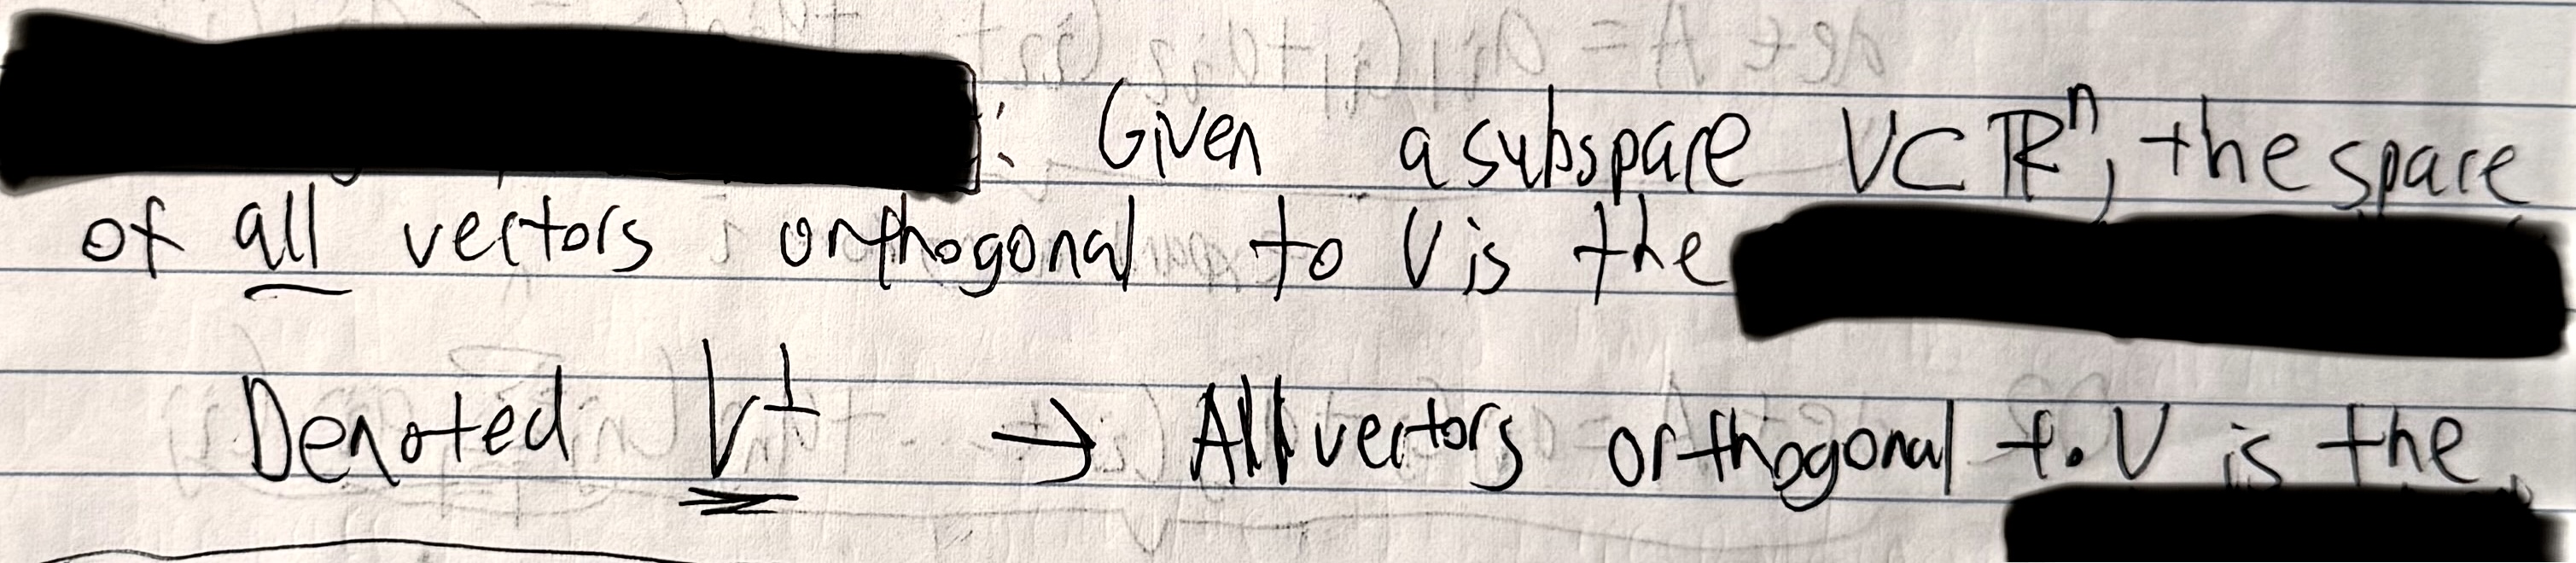 : Given a subspace V⊂ℝⁿ, the space
of all vectors orthogonal to V is the
Denoted V⊥ → All vectors orthogonal to V is the